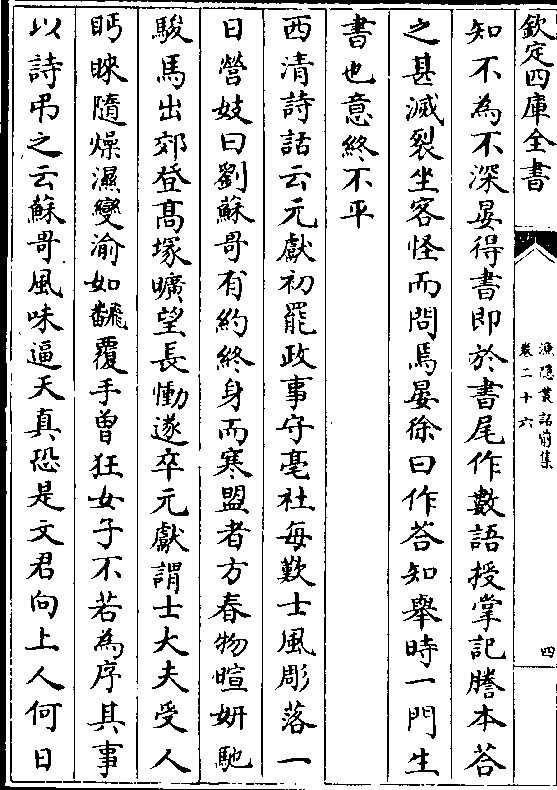 欽定四庫全書
漁隱叢話前集
卷二十六
四
知不為不深晏得書即於書尾作數語授掌記謄本答
之甚滅裂坐客怪而問焉晏徐曰作答知舉時一門生
書也意終不平
西清詩話云元獻初罷政事守亳社每歎士風彫落一
日營妓曰劉蘇哥有約終身而寒盟者方春物暄妍馳
駿馬出郊登髙塚曠望長慟遂卒元獻謂士大夫受人
眄睞隨燥濕變渝如翻覆手曽狂女子不若為序其事
以詩弔之云蘇哥風味逼天真恐是文君向上人何日